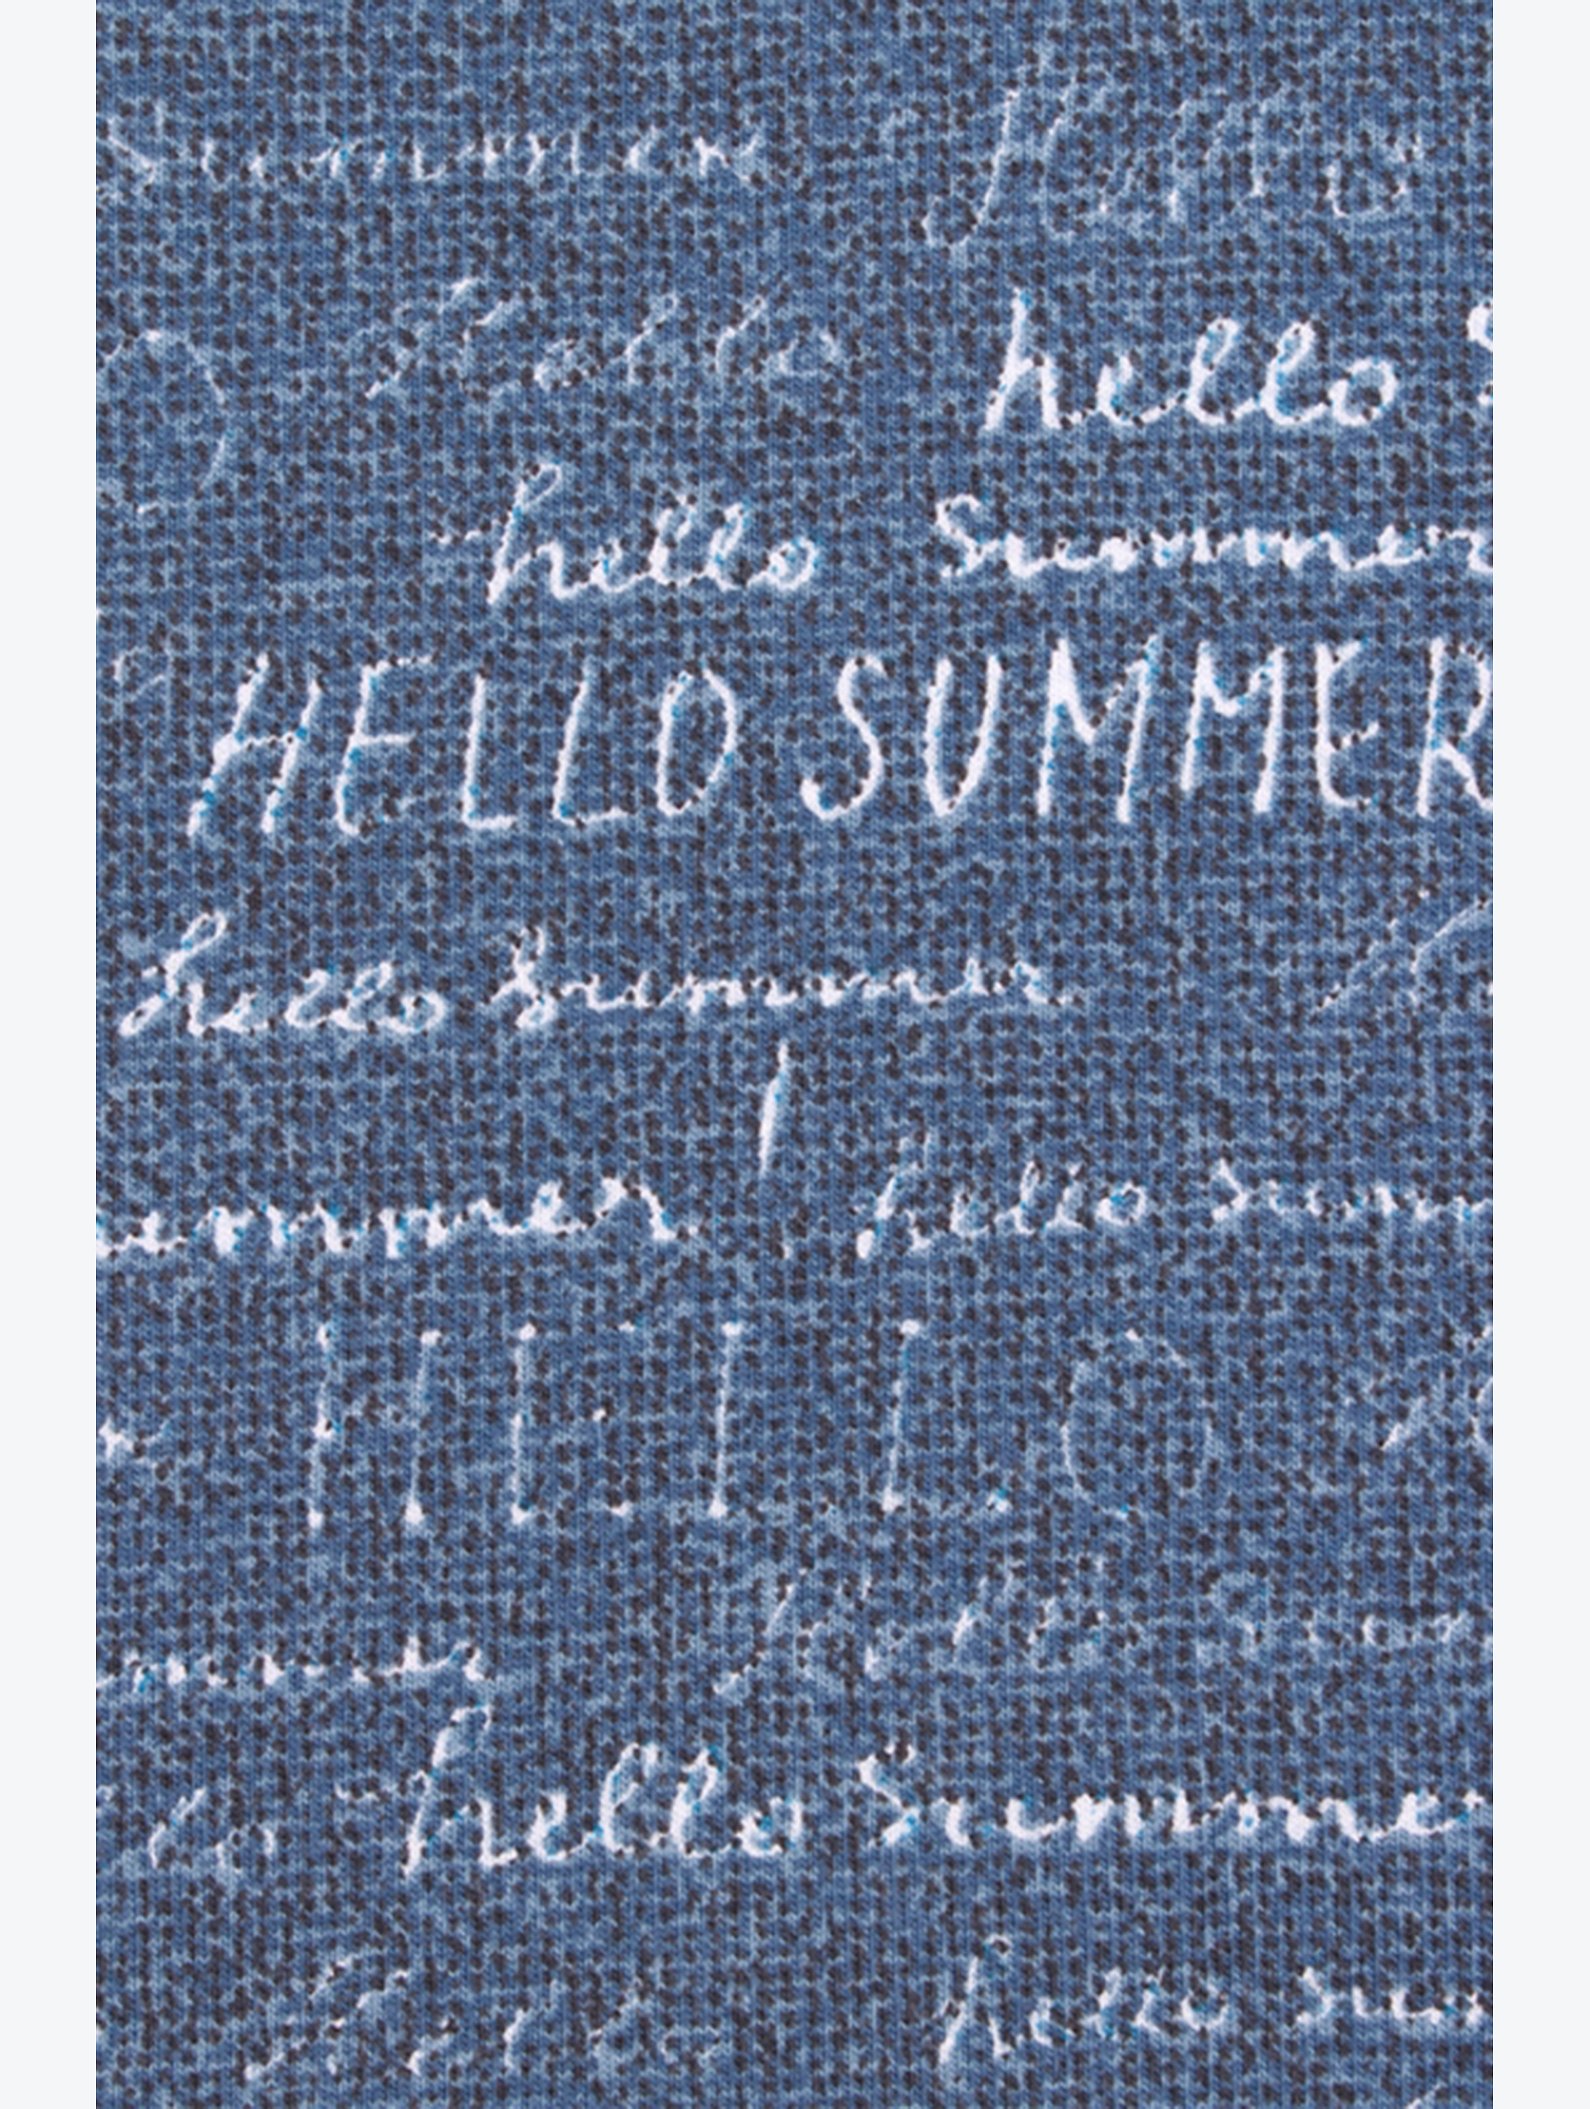 Summer Hello
Hello hello S
hello Summer
HELLO SUMMER
hello Summer
ummer hello Summ
HELLO
hello
hello Summe
hello sum